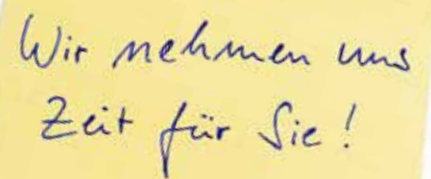 Wir nehmen uns
Zeit für Sie!